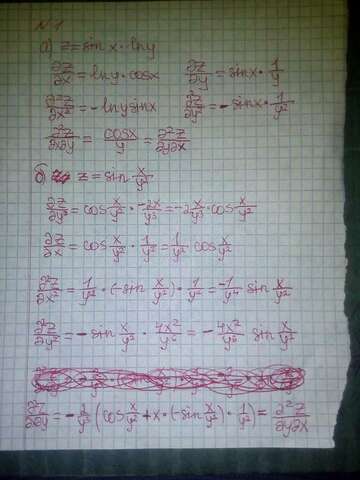 N 1
а) z = sin x · lny
∂z/∂x = lny · cosx ∂z/∂y = sinx · 1/y
∂²z/∂x² = -lny sinx ∂²z/∂y² = - sinx · 1/y²
∂²z/∂x∂y = cosx/y = ∂²z/∂y∂x
б) z = sin x/y²
∂z/∂y = cos x/y² · -2x/y³ = -2 x/y³ · cos x/y²
∂z/∂x = cos x/y² · 1/y² = 1/y² cos x/y²
∂²z/∂x² = 1/y² · (-sin x/y²) · 1/y² = -1/y⁴ sin x/y²
∂²z/∂y² = - sin x/y² · 4x²/y⁶ = - 4x²/y⁶ sin x/y²
= - 2/y³ (cos x/y² + x · (-sin x/y²) · 1/y²) = ∂²z/∂y∂x